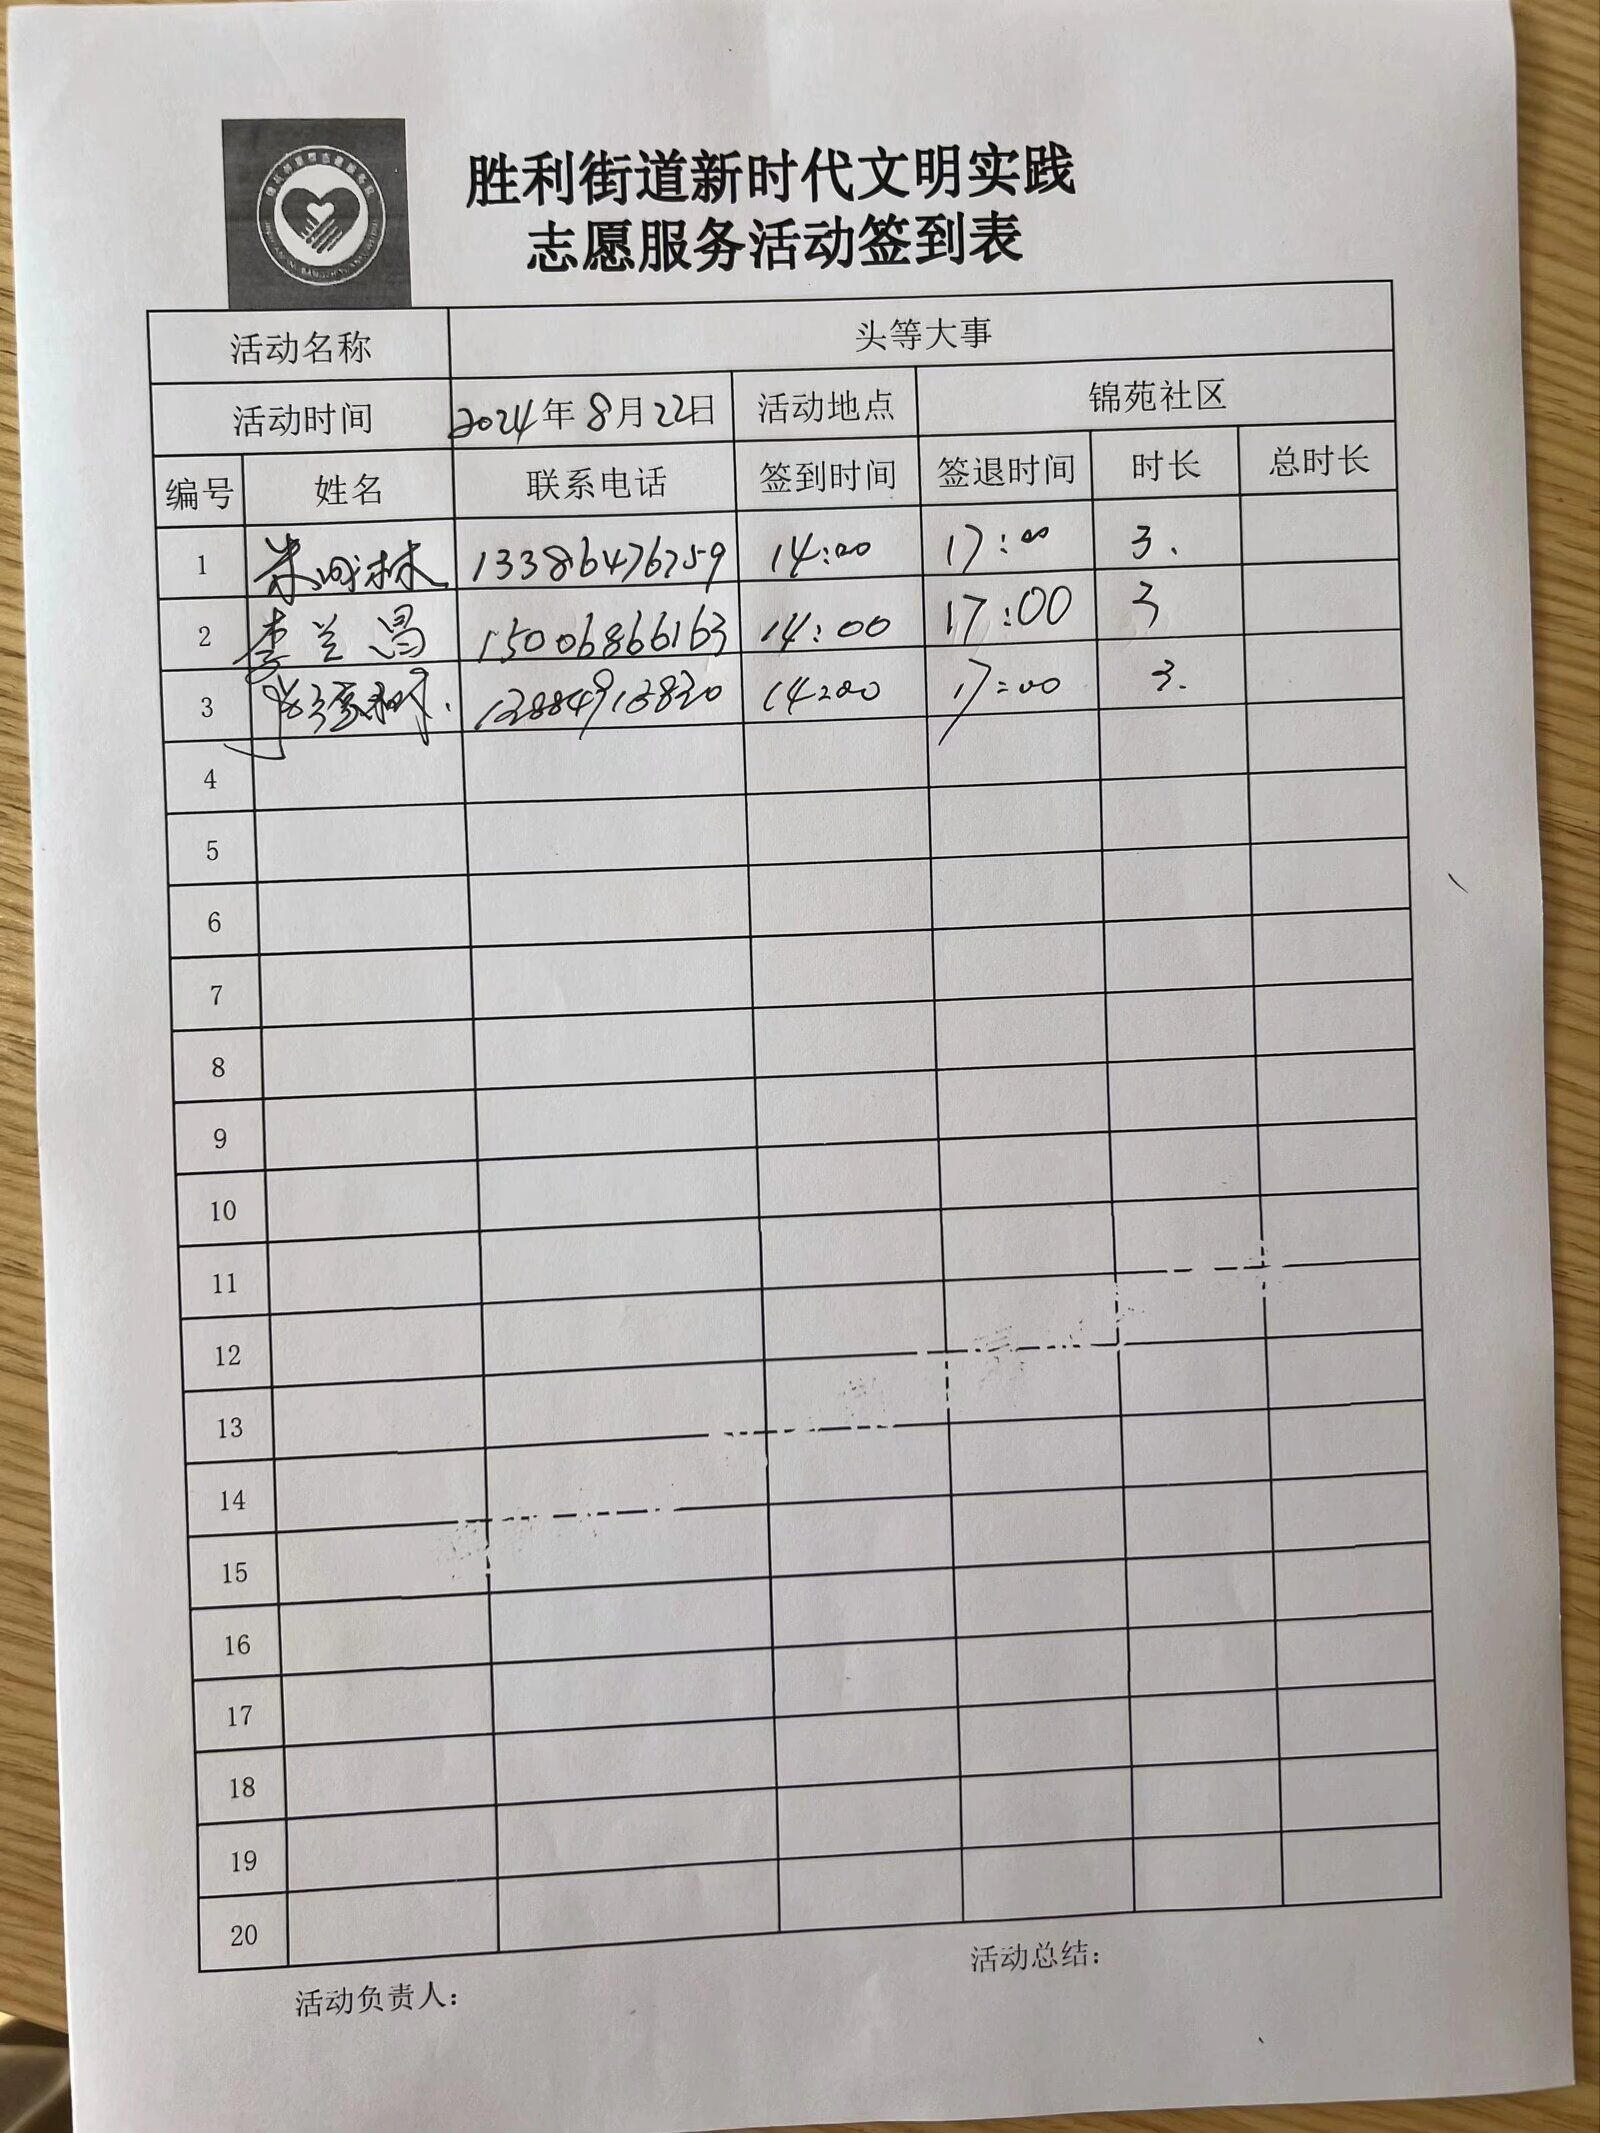 胜利街道新时代文明实践
志愿服务活动签到表
活动名称 头等大事
活动时间 2024年8月22日 活动地点 锦苑社区
编号 姓名 联系电话 签到时间 签退时间 时长 总时长
1 13386476759 14:00 17:00 3.
2 李兰昌 15006866163 14:00 17:00 3
3 14:00 17:00 3.
4
5
6
7
8
9
10
11
12
13
14
15
16
17
18
19
20
活动总结：
活动负责人：